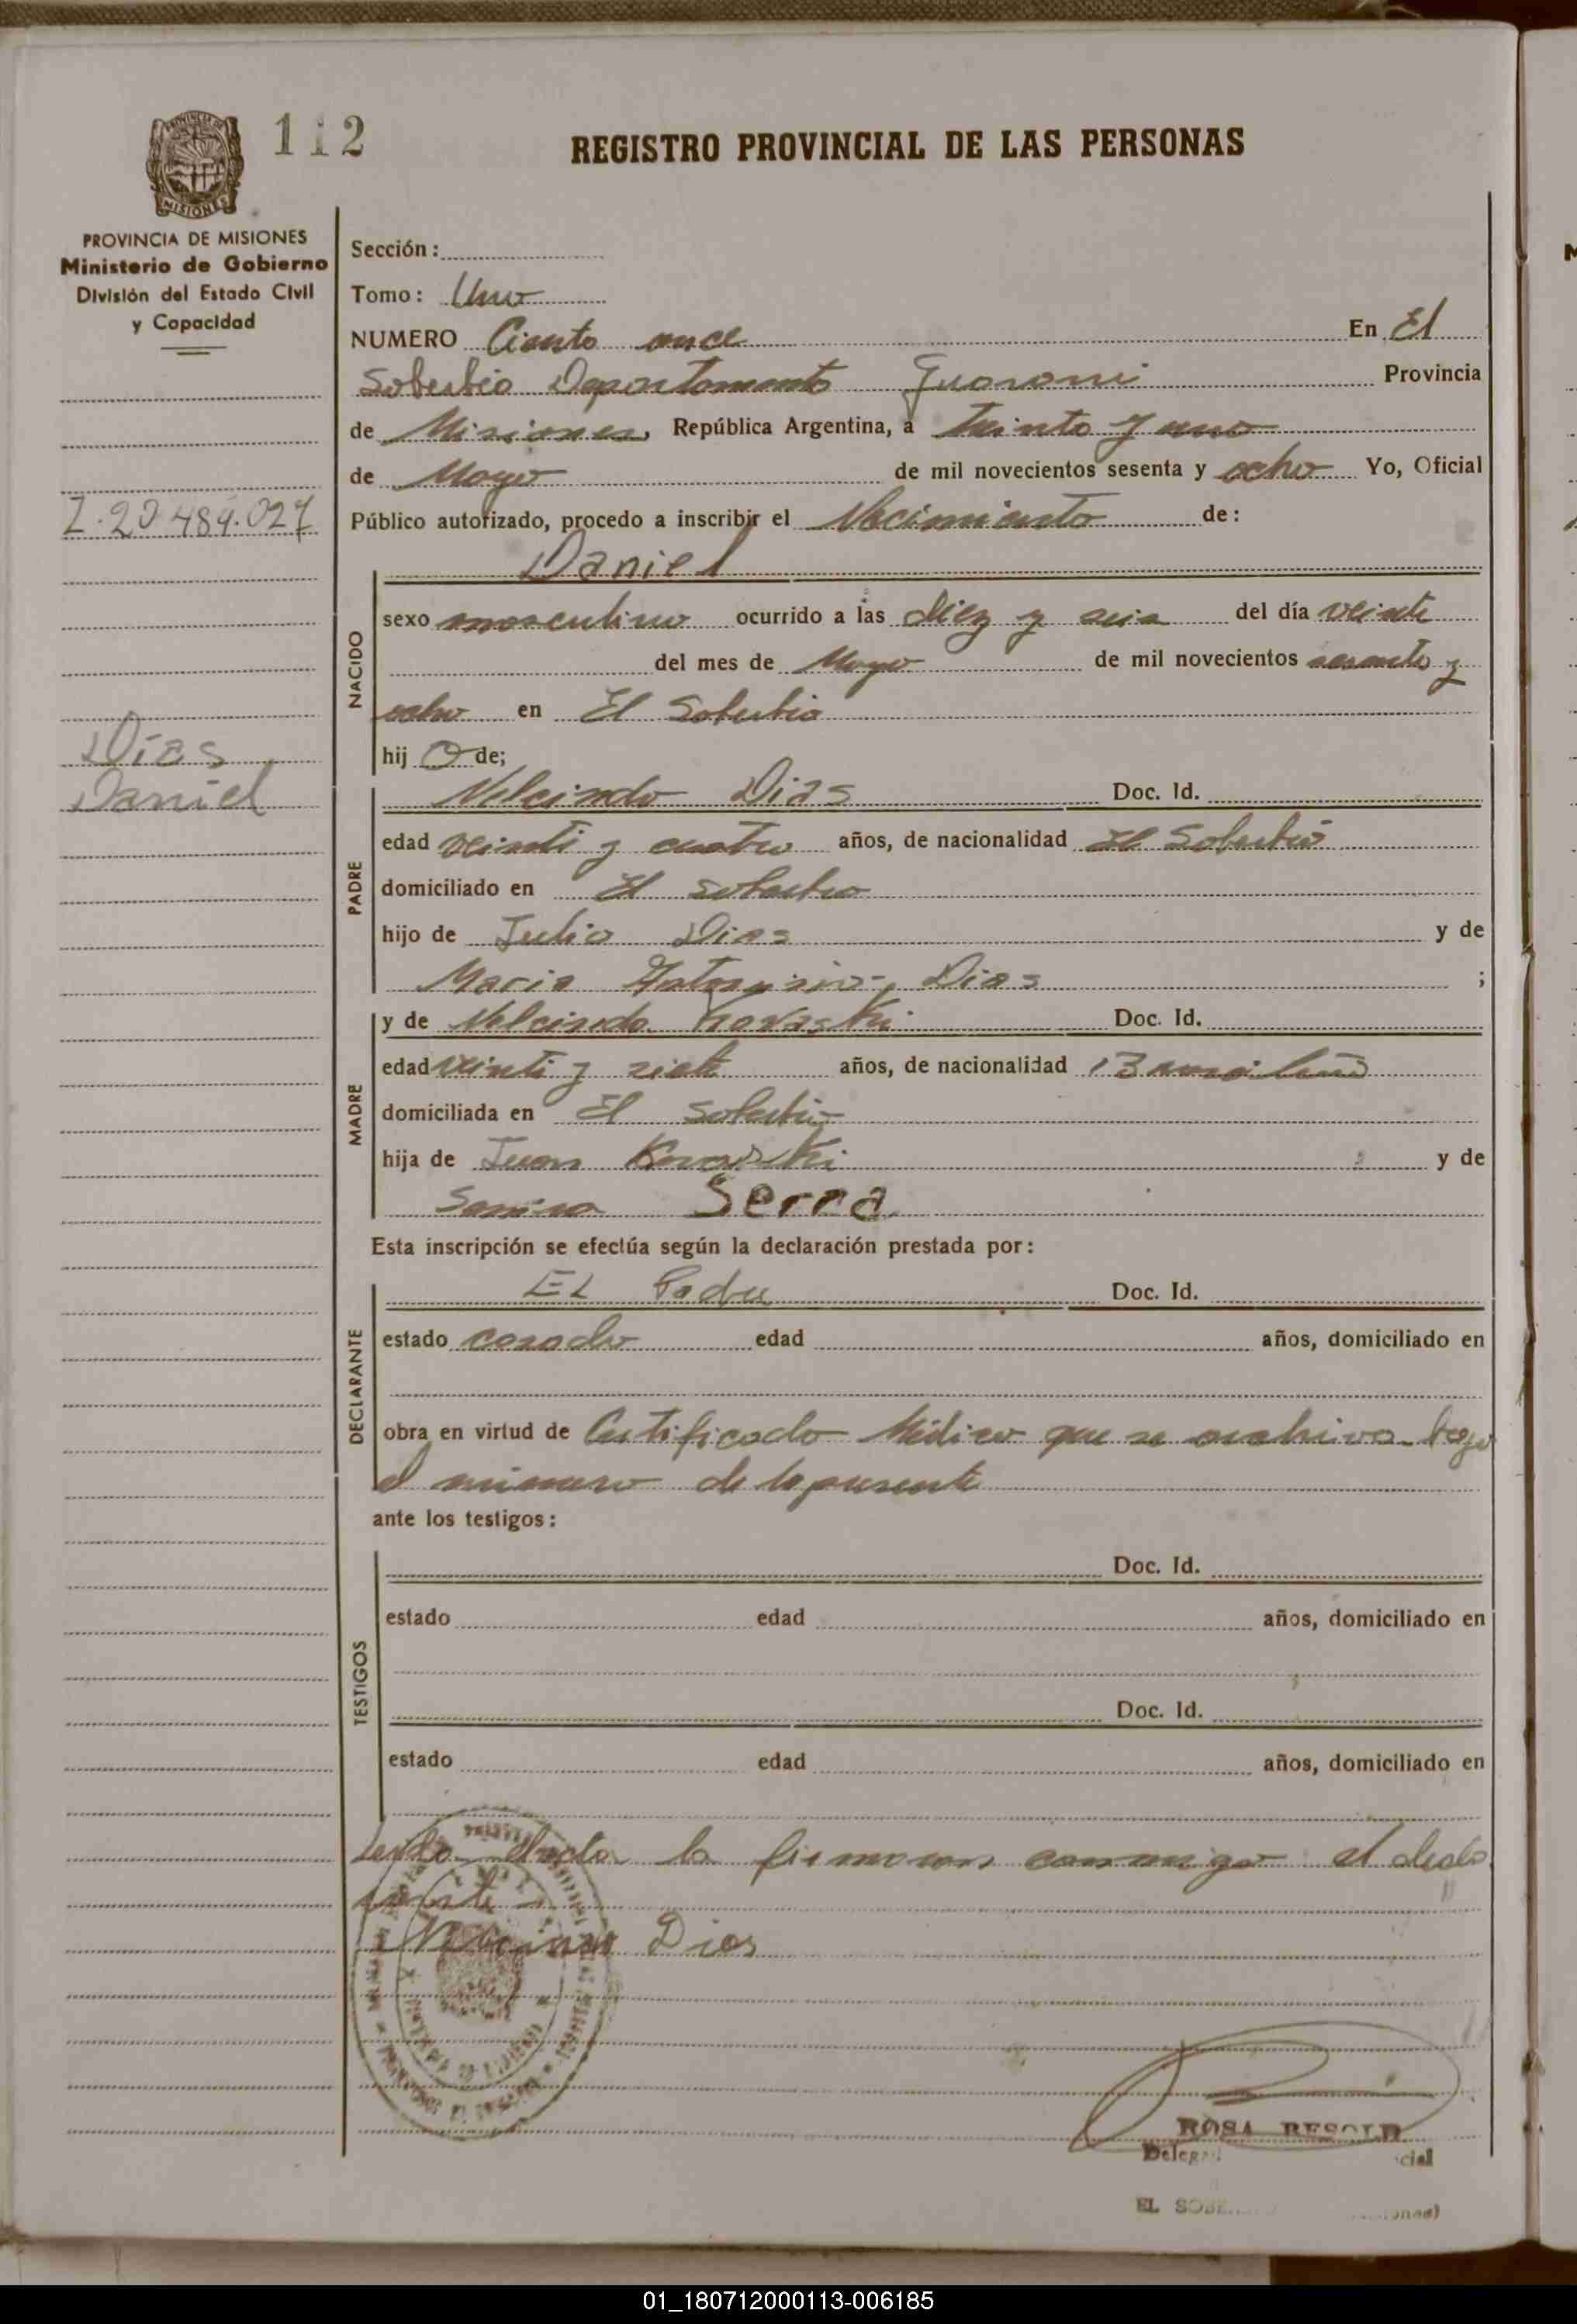 112
REGISTRO PROVINCIAL DE LAS PERSONAS
MISIONES
PROVINCIA DE MISIONES
Ministerio de Gobierno
División del Estado Civil
y Capacidad
Sección:
Tomo: Uno
NUMERO Ciento once En El
Soberbio Departamento Guarani Provincia
de Misiones, República Argentina, a treinta y uno
de Mayo de mil novecientos sesenta y ocho Yo, Oficial
Público autorizado, procedo a inscribir el Nacimiento de:
Daniel
NACIDO
sexo masculino ocurrido a las diez y seis del día veinte
del mes de Mayo de mil novecientos sesenta y
ocho en El Soberbio
hij o de;
Dias
Daniel
PADRE
Dias Doc. Id.
edad veinti y cuatro años, de nacionalidad El Soberbio
domiciliado en El Soberbio
hijo de Julio Dias y de
Maria Dias ;
MADRE
y de Doc. Id.
edad veinti y siete años, de nacionalidad
domiciliada en El Soberbio
hija de Juan y de
Serra
Esta inscripción se efectúa según la declaración prestada por:
DECLARANTE
EL Padre Doc. Id.
estado casado edad años, domiciliado en
obra en virtud de Certificado Médico que se archiva bajo
el numero de la presente
ante los testigos:
TESTIGOS
Doc. Id.
estado edad años, domiciliado en
Doc. Id.
estado edad años, domiciliado en
la firmaron conmigo el decla
rante
Dias
ROSA
EL
01_180712000113-006185